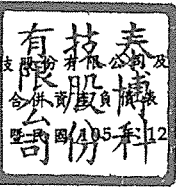 泰博科
技股份
有限公司
技股份有限公司及
合併資產負債表
暨民國 105 年 12